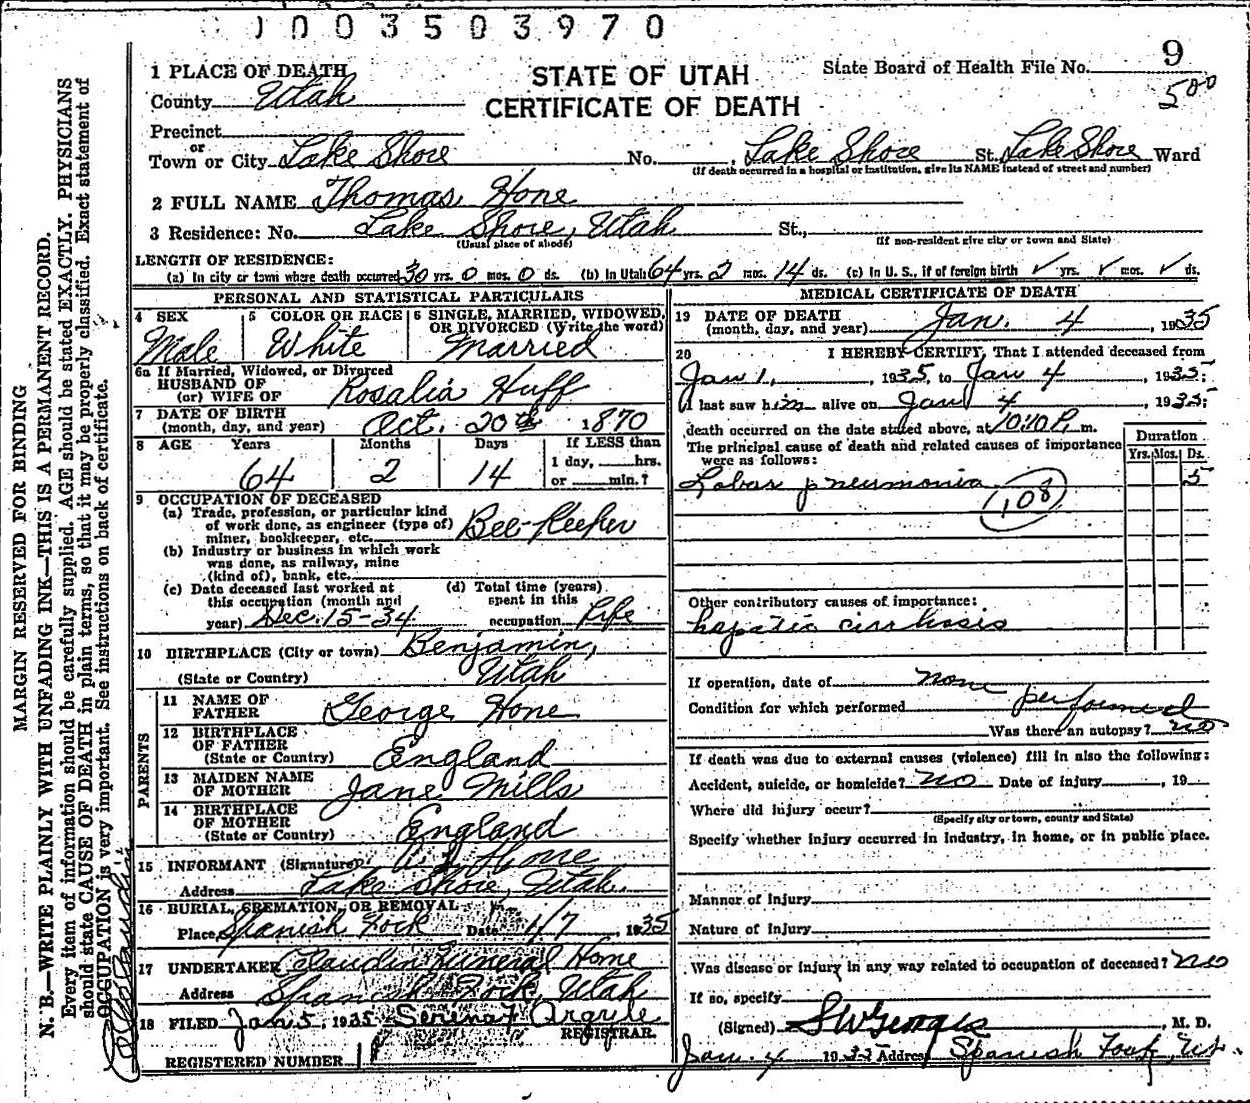 1003503970
9
500
STATE OF UTAH
CERTIFICATE OF DEATH
State Board of Health File No.
1 PLACE OF DEATH
County Utah
Precinct
or
Town or City Lake Shore No. , Lake Shore St. Lake Shore Ward
(If death occurred in a hospital or institution, give its NAME instead of street and number)
2 FULL NAME Thomas Hone
3 Residence: No. Lake Shore, Utah St.,
(Usual place of abode) (If non-resident give city or town and State)
LENGTH OF RESIDENCE:
(a) In city or town where death occurred 30 yrs. 0 mos. 0 ds. (b) In Utah 64 yrs. 2 mos. 14 ds. (c) In U. S., if of foreign birth ✓ yrs. ✓ mos. ✓ ds.
PERSONAL AND STATISTICAL PARTICULARS
4 SEX 5 COLOR OR RACE 6 SINGLE, MARRIED, WIDOWED, OR DIVORCED (Write the word)
Male White Married
6a If Married, Widowed, or Divorced
HUSBAND OF
(or) WIFE OF Rosalia Huff
7 DATE OF BIRTH
(month, day, and year) Oct. 20th 1870
8 AGE Years Months Days If LESS than
64 2 14 1 day, hrs.
or min.?
9 OCCUPATION OF DECEASED
(a) Trade, profession, or particular kind
of work done, as engineer (type of)
miner, bookkeeper, etc. Bee-Keeper
(b) Industry or business in which work
was done, as railway, mine
(kind of), bank, etc.
(c) Date deceased last worked at (d) Total time (years)
this occupation (month and spent in this
year) Dec. 15-34 occupation Life
10 BIRTHPLACE (City or town) Benjamin,
(State or Country) Utah
PARENTS
11 NAME OF
FATHER George Hone
12 BIRTHPLACE
OF FATHER
(State or Country) England
13 MAIDEN NAME
OF MOTHER Jane Mills
14 BIRTHPLACE
OF MOTHER
(State or Country) England
15 INFORMANT (Signature) Hone
Address Lake Shore, Utah.
16 BURIAL, CREMATION, OR REMOVAL
Place, Spanish Fork Date 1/7, 1935
17 UNDERTAKER Claudin Funeral Home
Address Spanish Fork, Utah
18 FILED Jan 5, 1935 Serena F Argyle
REGISTRAR.
REGISTERED NUMBER 1
MEDICAL CERTIFICATE OF DEATH
19 DATE OF DEATH
(month, day, and year) Jan. 4, 1935
20 I HEREBY CERTIFY, That I attended deceased from
Jan 1, 1935, to Jan 4, 1935;
I last saw him alive on Jan 4 1935;
death occurred on the date stated above, at 10:10 P. m.
The principal cause of death and related causes of importance
were as follows:
Duration
Yrs. Mos. Ds.
Lobar pneumonia 5
108
Other contributory causes of importance:
hepatic cirrhosis
If operation, date of none
Condition for which performed performed
Was there an autopsy? no
If death was due to external causes (violence) fill in also the following:
Accident, suicide, or homicide? no Date of injury , 19
Where did injury occur?
(Specify city or town, county and State)
Specify whether injury occurred in industry, in home, or in public place.
Manner of Injury
Nature of Injury
Was disease or injury in any way related to occupation of deceased? no
If so, specify
(Signed) S W Georges, M. D.
Jan. 4 1935 Address Spanish Fork, Ut.
MARGIN RESERVED FOR BINDING
N. B.—WRITE PLAINLY WITH UNFADING INK—THIS IS A PERMANENT RECORD.
Every item of information should be carefully supplied. AGE should be stated EXACTLY. PHYSICIANS
should state CAUSE OF DEATH in plain terms, so that it may be properly classified. Exact statement of
OCCUPATION is very important. See instructions on back of certificate.